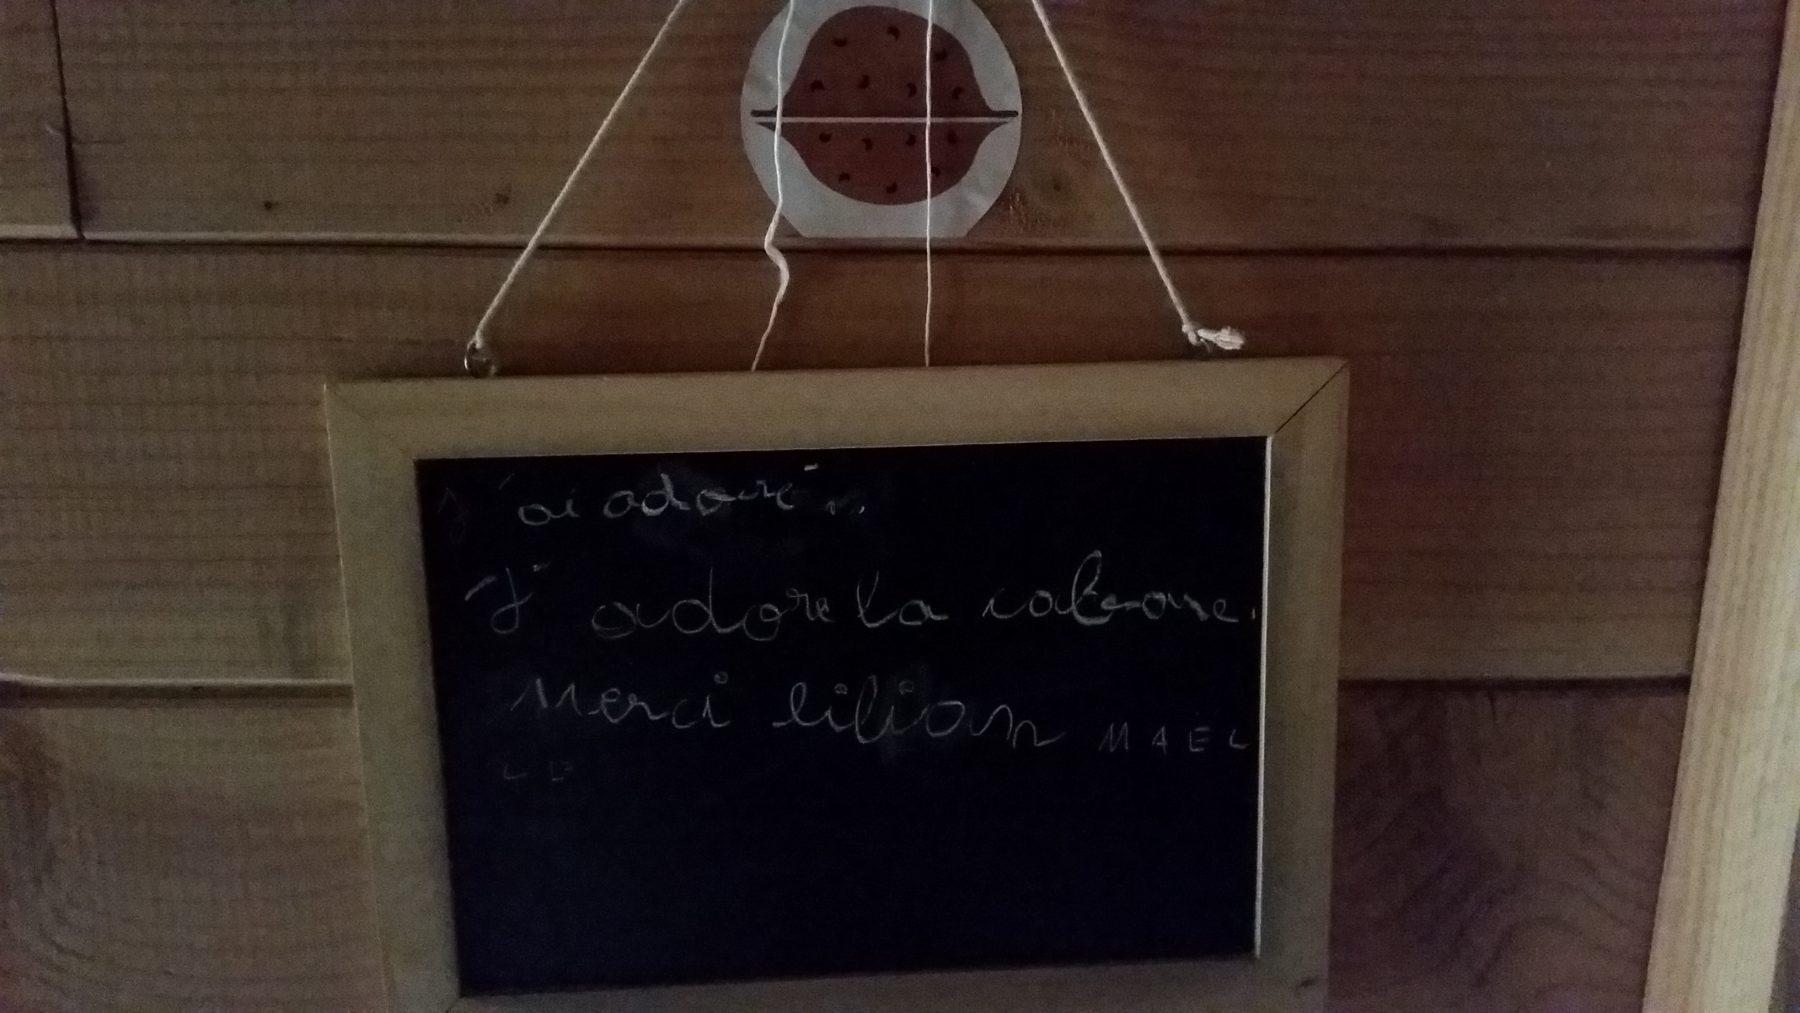 J'ai adoré
J'adore la cabane.
Merci lilian MAËL